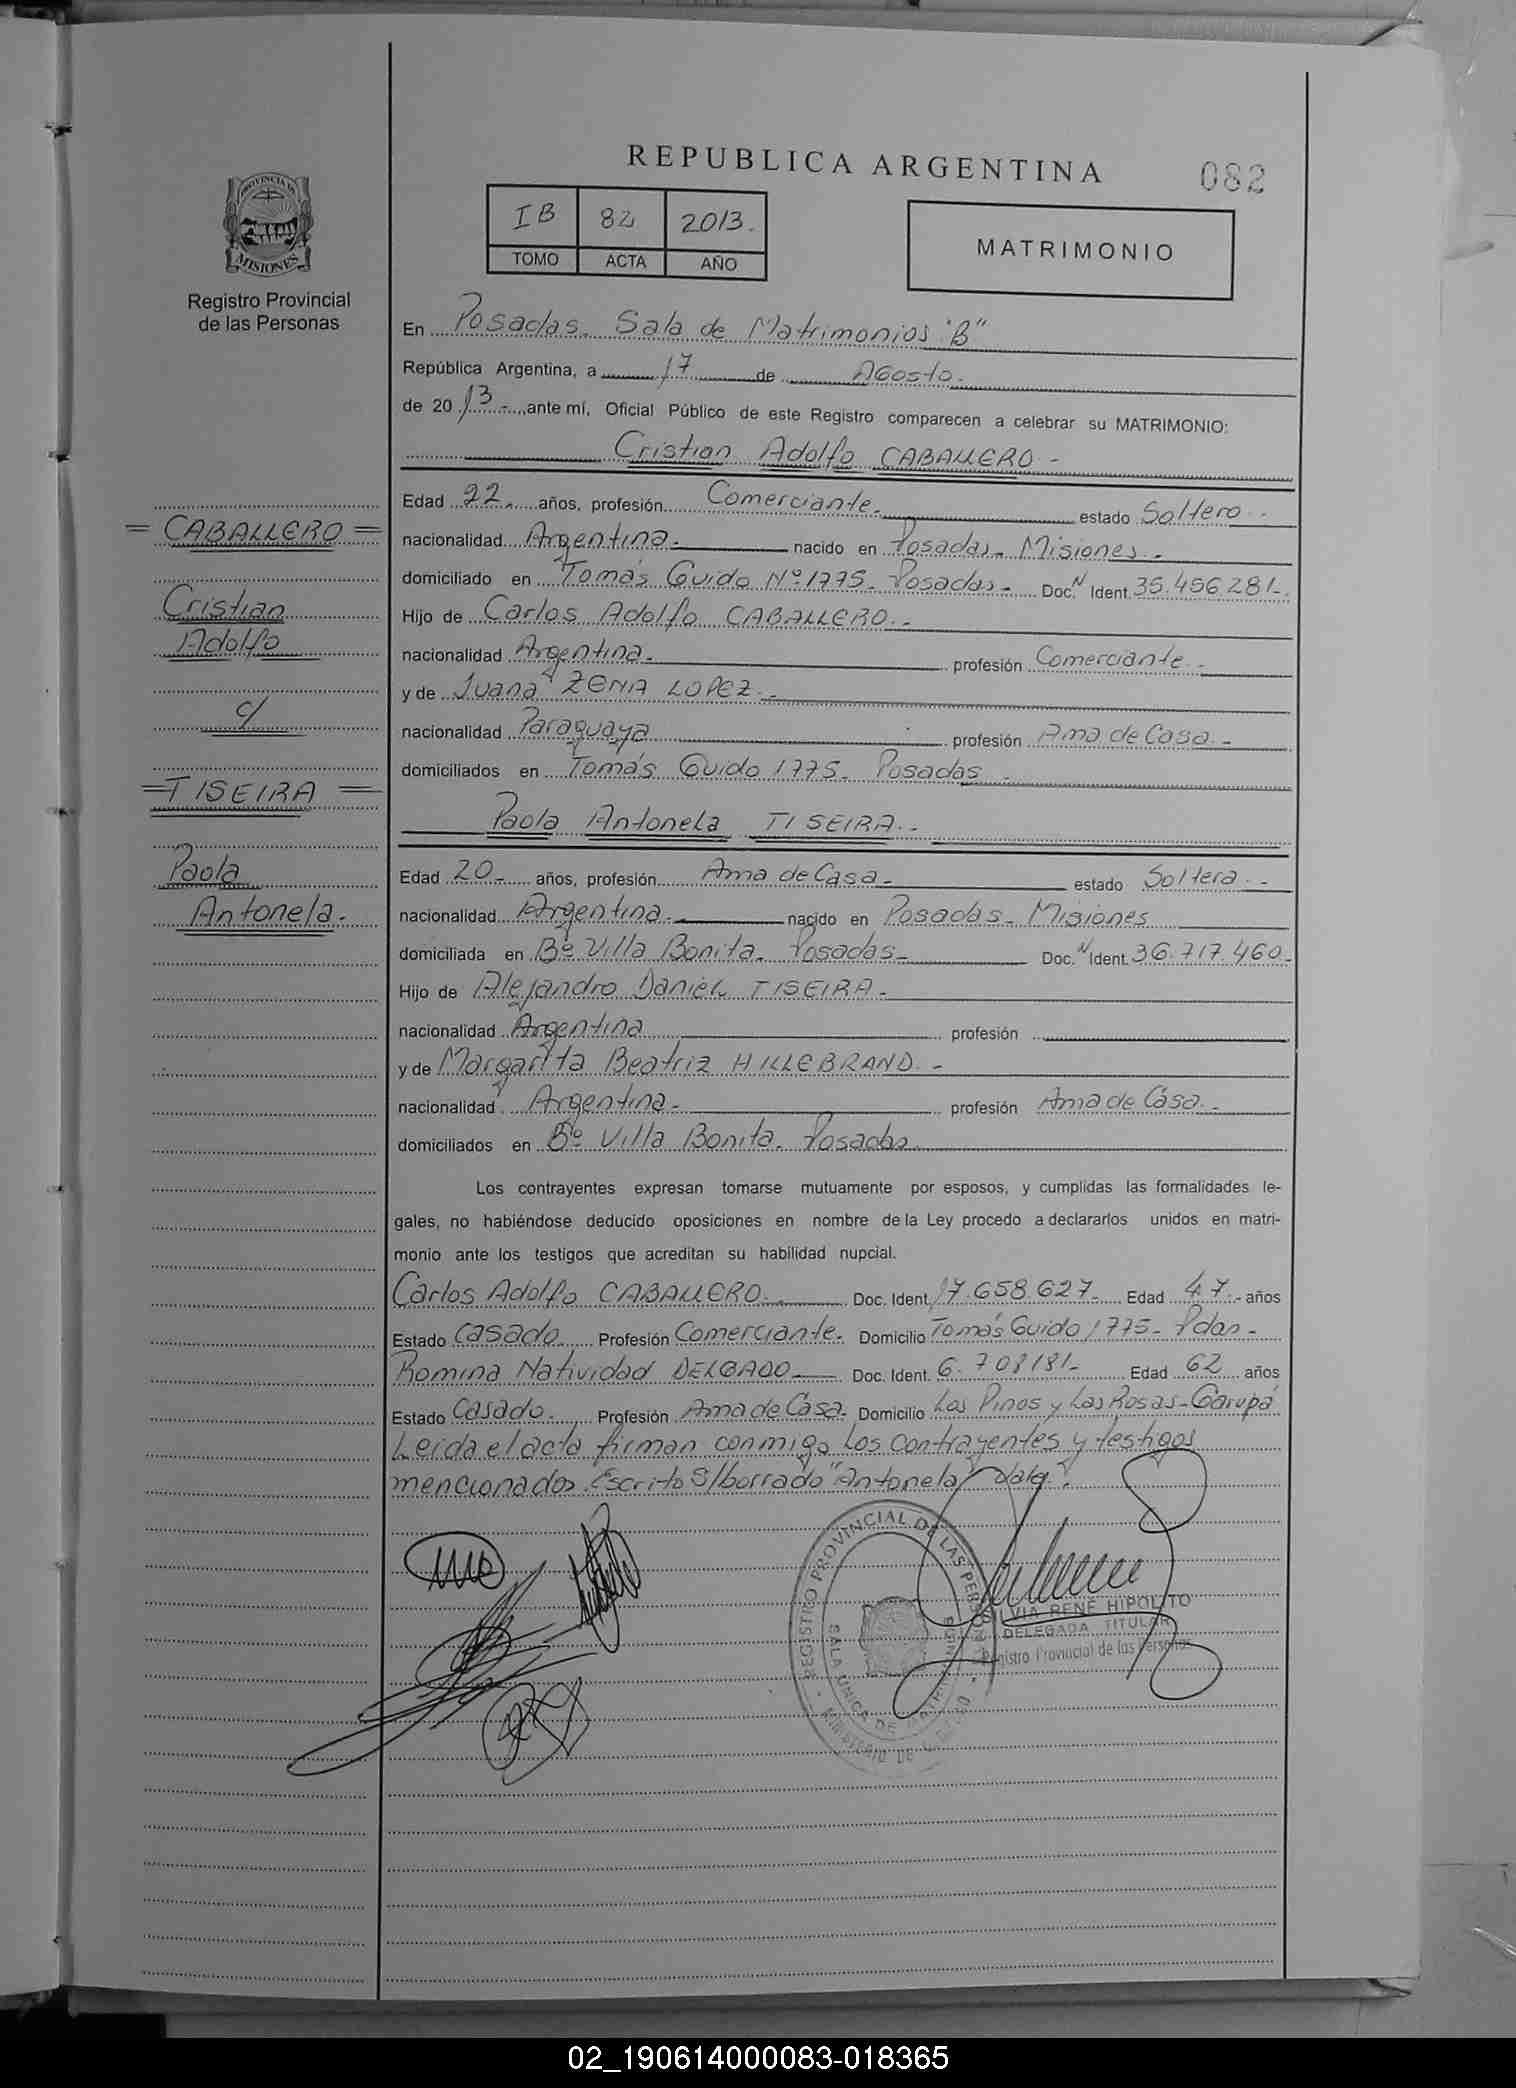 REPUBLICA ARGENTINA
082
IB 82 2013.
TOMO ACTA AÑO
MATRIMONIO
PROVINCIA DE
MISIONES
Registro Provincial
de las Personas
En Posadas. Sala de Matrimonios "B"
República Argentina, a 17 de Agosto.
de 20 13.- ante mí, Oficial Público de este Registro comparecen a celebrar su MATRIMONIO:
Cristian Adolfo CABALLERO.-
Edad 22. años, profesión Comerciante. estado Soltero.-
nacionalidad Argentina. nacido en Posadas. Misiones.-
domiciliado en Tomás Guido Nº 1775. Posadas.- Doc. N Ident. 35.456.281-.
Hijo de Carlos Adolfo CABALLERO.-
nacionalidad Argentina. profesión Comerciante.-
y de Juana ZENA LOPEZ.-
nacionalidad Paraguaya profesión Ama de Casa.-
domiciliados en Tomás Guido 1775. Posadas.
Paola Antonela TISEIRA.-
Edad 20- años, profesión Ama de Casa- estado Soltera.-
nacionalidad Argentina.- nacido en Posadas- Misiones
domiciliada en Bº Villa Bonita. Posadas- Doc. N Ident. 36.717.460-
Hijo de Alejandro Daniel TISEIRA.-
nacionalidad Argentina profesión
y de Margarita Beatriz HILLEBRAND.-
nacionalidad Argentina.- profesión Ama de Casa.-
domiciliados en Bº Villa Bonita. Posadas.
Los contrayentes expresan tomarse mutuamente por esposos, y cumplidas las formalidades le-
gales, no habiéndose deducido oposiciones en nombre de la Ley procedo a declararlos unidos en matri-
monio ante los testigos que acreditan su habilidad nupcial.
Carlos Adolfo CABALLERO.- Doc. Ident. 17.658.627- Edad 47.- años
Estado Casado. Profesión Comerciante. Domicilio Tomás Guido 1775- Pdas-
Romina Natividad DELGADO- Doc. Ident. 6.708181- Edad 62 años
Estado Casado. Profesión Ama de Casa. Domicilio Los Pinos y Las Rosas-Garupá
Leída el acta firman conmigo los contrayentes y testigos
mencionados. Escrito S/borrado "Antonela" Vale.
= CABALLERO =
Cristian
Adolfo
c/
=TISEIRA=
Paola
Antonela.
REGISTRO PROVINCIAL DE LAS PERSONAS
SALA UNICA DE MATRIMONIOS
MINISTERIO DE GOBIERNO
SILVIA RENÉ HIPOLITO
DELEGADA TITULAR
Registro Provincial de las Personas
02_190614000083-018365